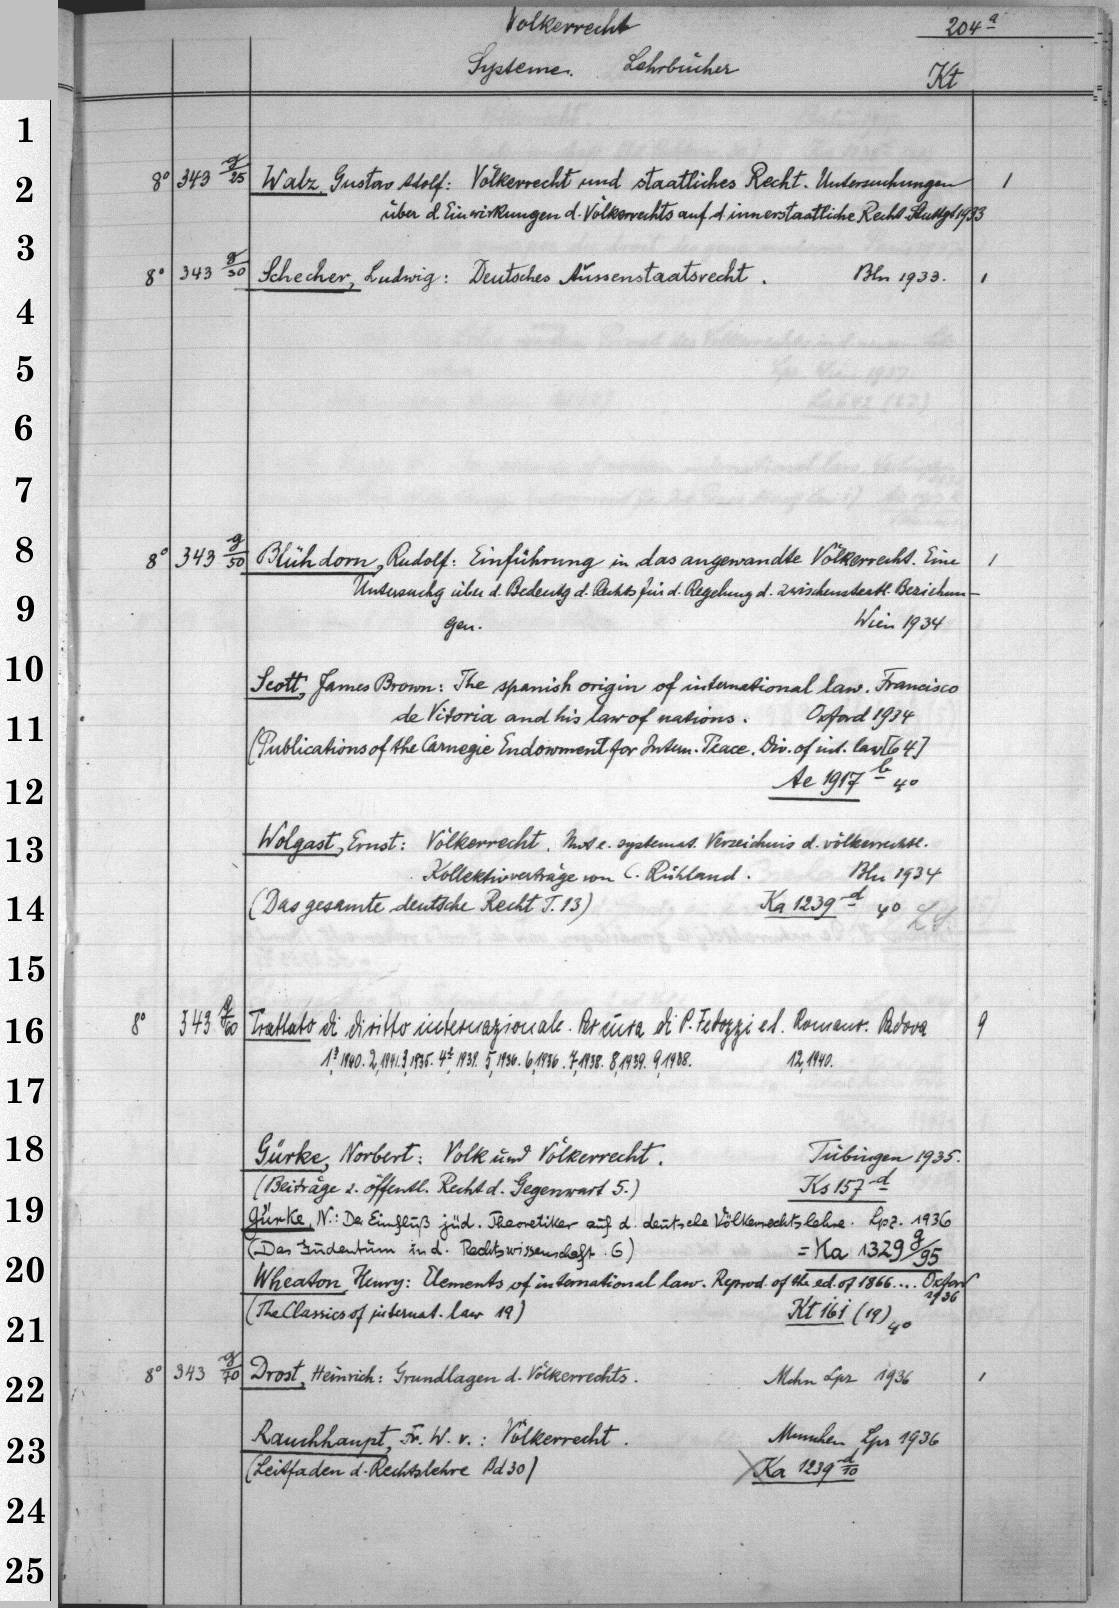 Völkerrecht 204 a
Systeme. Lehrbücher Kt
1
8° 343 g/25 Walz, Gustav Adolf: Völkerrecht und staatliches Recht. Untersuchungen 1
2
über d Einwirkungen d. Völkerrechts auf d innerstaatliche Recht Stuttgt 1933
3
8° 343 g/30 Schecher, Ludwig: Deutsches Aussenstaatsrecht. Bln 1933. 1
4
5
6
7
8
8° 343 g/50 Blühdorn, Rudolf: Einführung in das angewandte Völkerrecht. Eine 1
Untersuchg über d. Bedeutg d. Rechts für d. Regelung d. zwischenstaatl. Beziehun-
9
gen. Wien 1934
10
Scott, James Brown: The spanish origin of international law. Francisco
de Vitoria and his law of nations. Oxford 1934
11
(Publications of the Carnegie Endowment for Intern. Peace. Div. of int. law [64]
Ae 1917 b 4°
12
13
Wolgast, Ernst: Völkerrecht. Mit e. systemat. Verzeichnis d. völkerrechtl.
Kollektivverträge von C. Rühland. Bln 1934
14
(Das gesamte deutsche Recht T. 13) Ka 1239 d 4° LS
15
16
8° 343 g/60 Trattato di diritto internazionale. Per cura di P. Fedozzi ed. Romano. Padova 9
1,3 1940. 2,1941. 3,1935. 4, 1938. 5,1936. 6,1936. 7,1938. 8,1939. 9,1938. 12,1940.
17
18
Gürke, Norbert: Volk und Völkerrecht. Tübingen 1935.
(Beiträge z. öffentl. Recht d. Gegenwart 5.) Ks 157 d
19
Gürke, N.: Der Einfluß jüd. Theoretiker auf d. deutsche Völkerrechtslehre. Lpz. 1936
(Das Judentum in d. Rechtswissenschaft. 6) = Ka 1329 g/95
20
Wheaton, Henry: Elements of international law. Reprod. of the ed. of 1866 ... Oxford 1936
(The Classics of internat. law 19) Kt 161 (19) 4°
21
22
8° 343 g/70 Drost, Heinrich: Grundlagen d. Völkerrechts. Mchn Lpz 1936 1
23
Rauchhaupt, Fr. W. v.: Völkerrecht. München Lpz 1936
(Leitfaden d. Rechtslehre Bd 30) Ka 1239 d/10
24
25